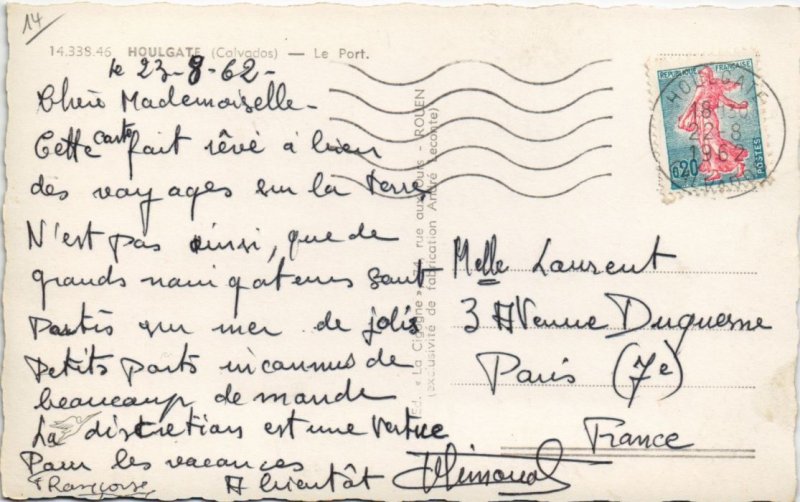 14
14.338.46 HOULGATE (Calvados) — Le Port.
le 23-8-62-
Chère Mademoiselle-
Cette carte fait rêvé à bien
des voyages sur la terre
N'est pas ainsi, que de
grands navigateurs sont
Partis sur mer de jolis
Petits Ports inconnus de
beaucoup de monde
La discretion est une vertue
Pour les vacances
Françoise
A bientôt
Ed. « La Cigogne » rue aux Ours - ROUEN
(exclusivité de fabrication André Leconte)
REPUBLIQUE FRANÇAISE
0,20
POSTES
HOULGATE
18
22-8
1962
Melle Laurent
3 AVenue Duquesne
Paris (7e)
France